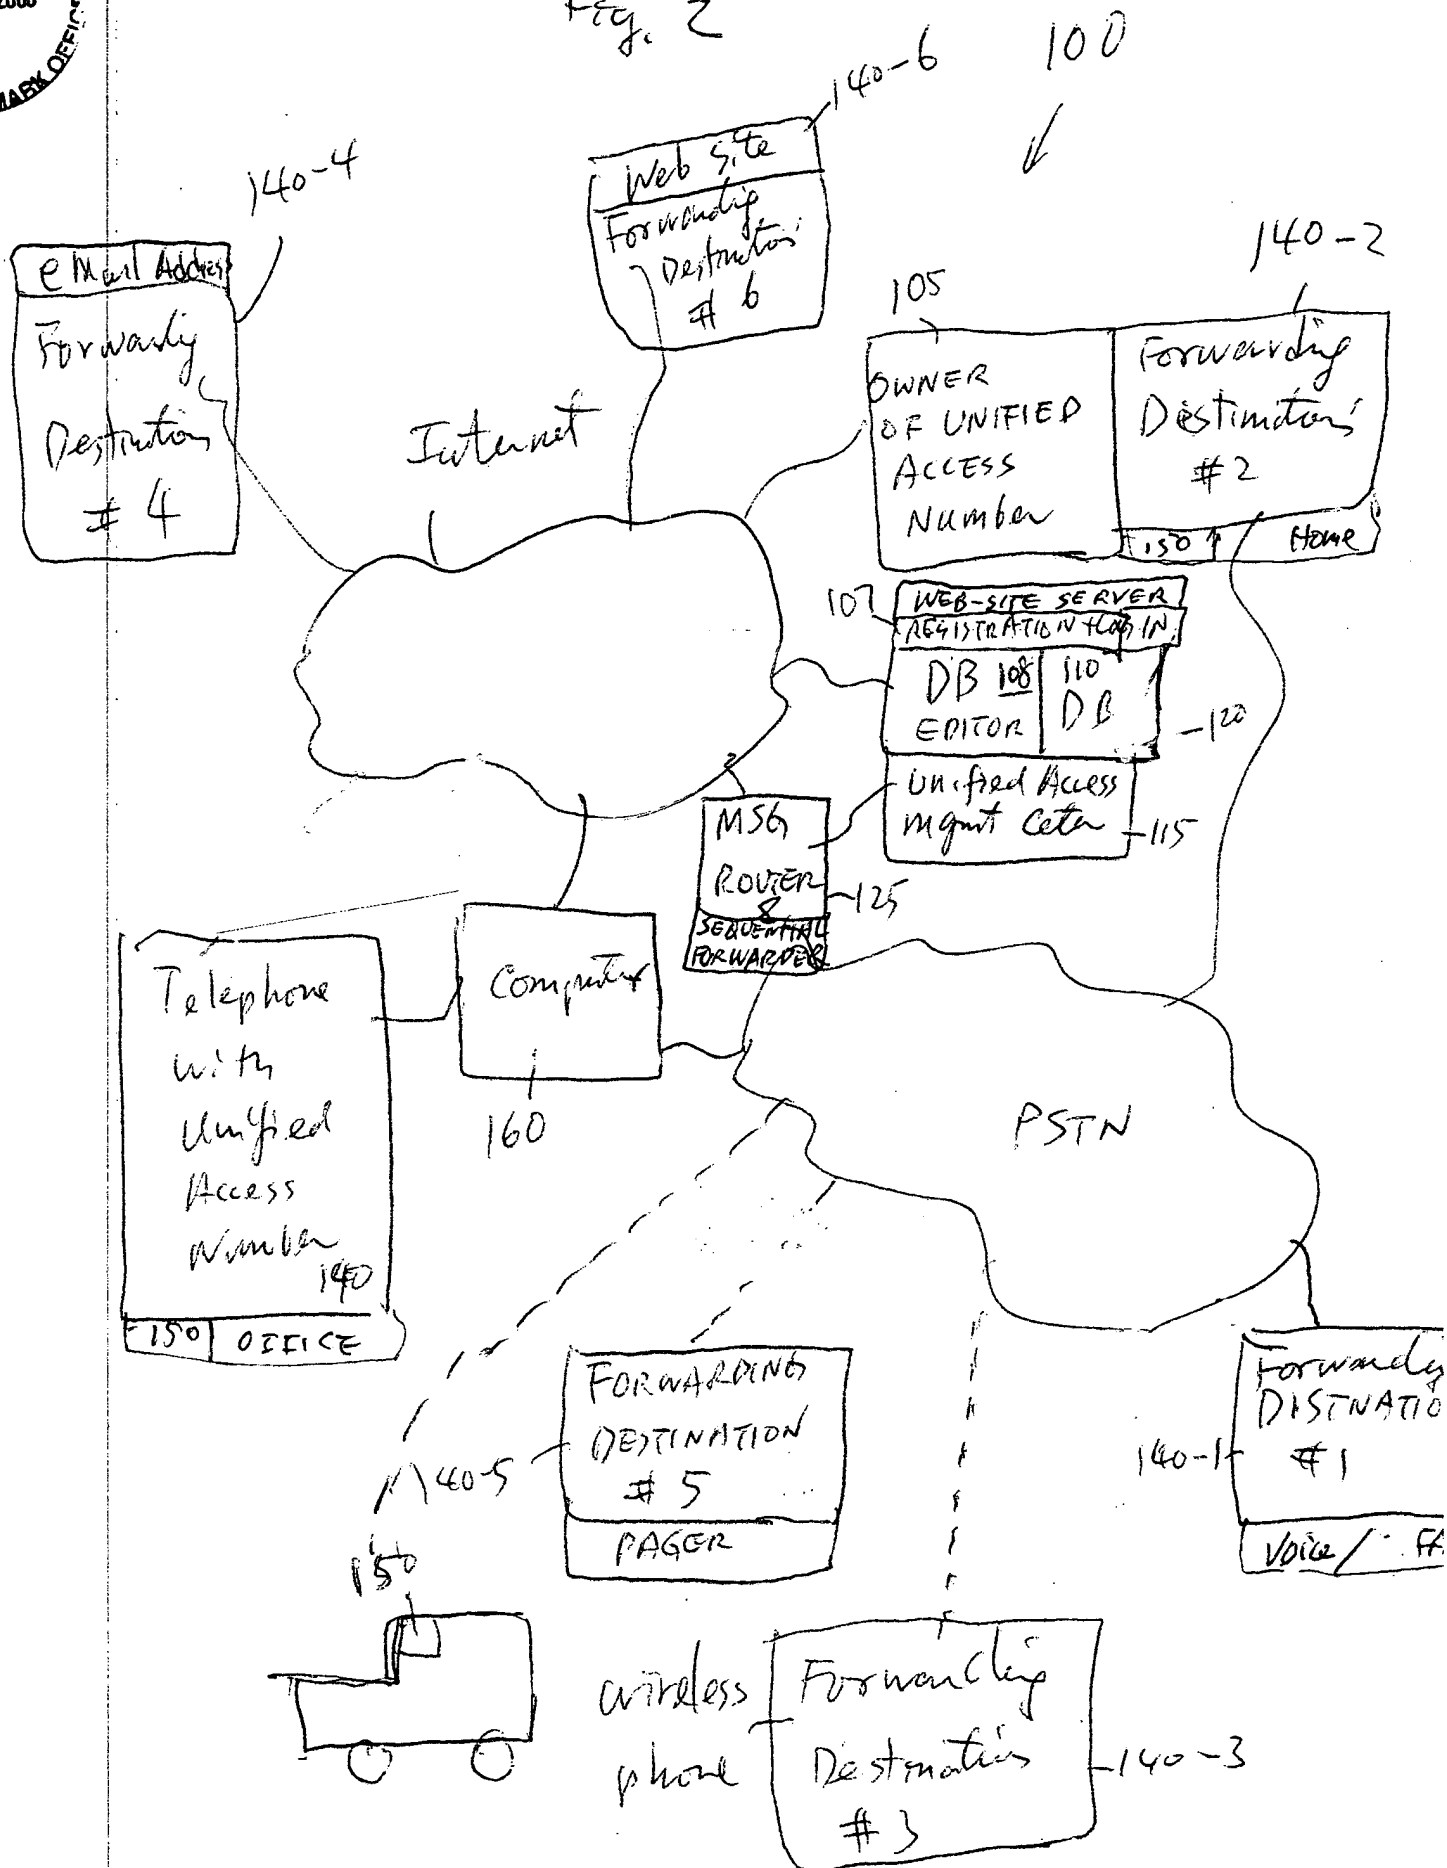 2000
MARK OFFICE
Fig. 2
100
140-6
Web Site
Forwarding
Destination
# 6
140-4
eMail Address
Forwarding
Destination
# 4
Internet
105
OWNER
OF UNIFIED
ACCESS
Number
140-2
Forwarding
Destination
#2
150
Home
107
WEB-SITE SERVER
REGISTRATION + LOG IN
DB 108
EDITOR
110
DB
120
Unified Access
mgmt Center
115
MSG
ROUTER
&
SEQUENTIAL
FORWARDER
125
Telephone
with
Unified
Access
Number
140
150 OFFICE
Computer
160
PSTN
FORWARDING
DESTINATION
# 5
PAGER
140-5
Forwarding
DISTNATIO
#1
140-1
Voice / FA
150
wireless
phone
Forwarding
Destination
# 3
140-3